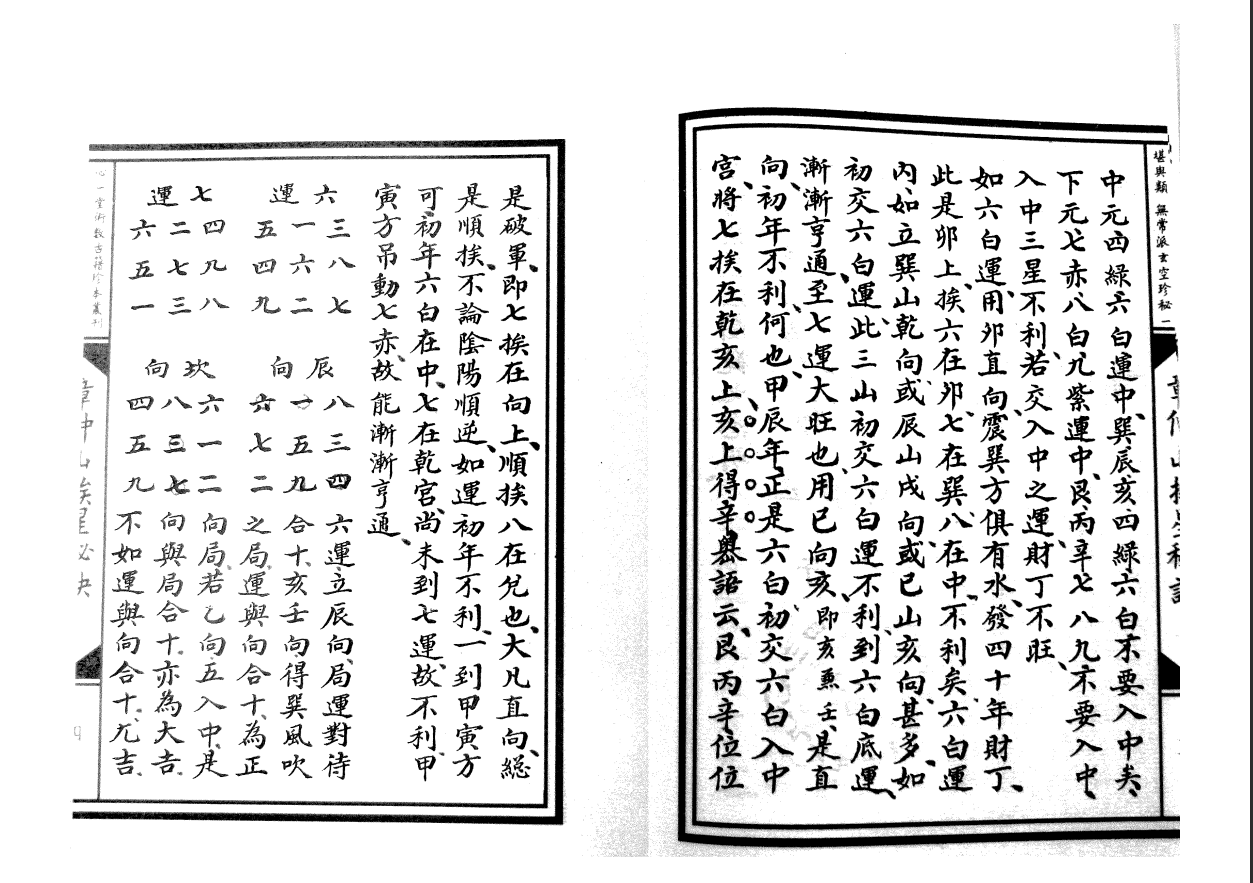 堪輿類 無常派玄空珍秘 一
中元四綠六白運中、巽辰亥四綠六白不要入中矣、
下元七赤八白九紫運中、艮丙辛七八九不要入中、
入中三星不利、若交入中之運財丁不旺、
如六白運、用卯直向、震巽方俱有水、發四十年財丁、
此是卯上、挨六在卯、七在巽、八在中、不利矣、六白運
內、如立巽山乾向、或辰山戌向、或巳山亥向、甚多、如
初交六白運、此三山初交六白運不利、到六白底運、
漸漸亨通、至七運大旺也、用巳向亥、即亥兼壬、是直
向、初年不利、何也、甲辰年正是六白初交六白入中
宮、將七挨在乾亥上、亥上得辛、奧語云、艮丙辛位位
是破軍、即七挨在向上、順挨八在兌也、大凡直向、總
是順挨、不論陰陽順逆、如運初年不利、一到甲寅方
可、初年六白在中、七在乾宮、尚未到七運、故不利、甲
寅方吊動七赤、故能漸漸亨通、
六運
三八七
一六二
五四九
辰向
八三四
一五九
六七二
六運立辰向、局運對待
合十、亥壬向得巽風吹
之局、運與向合十、為正
七運
四九八
二七三
六五一
坎向
六一二
八三七
四五九
向局、若乙向五入中、是
向與局合十、亦為大吉、
不如運與向合十、尤吉、
心一堂術數古籍珍本叢刊
章仲山挨星秘訣
四